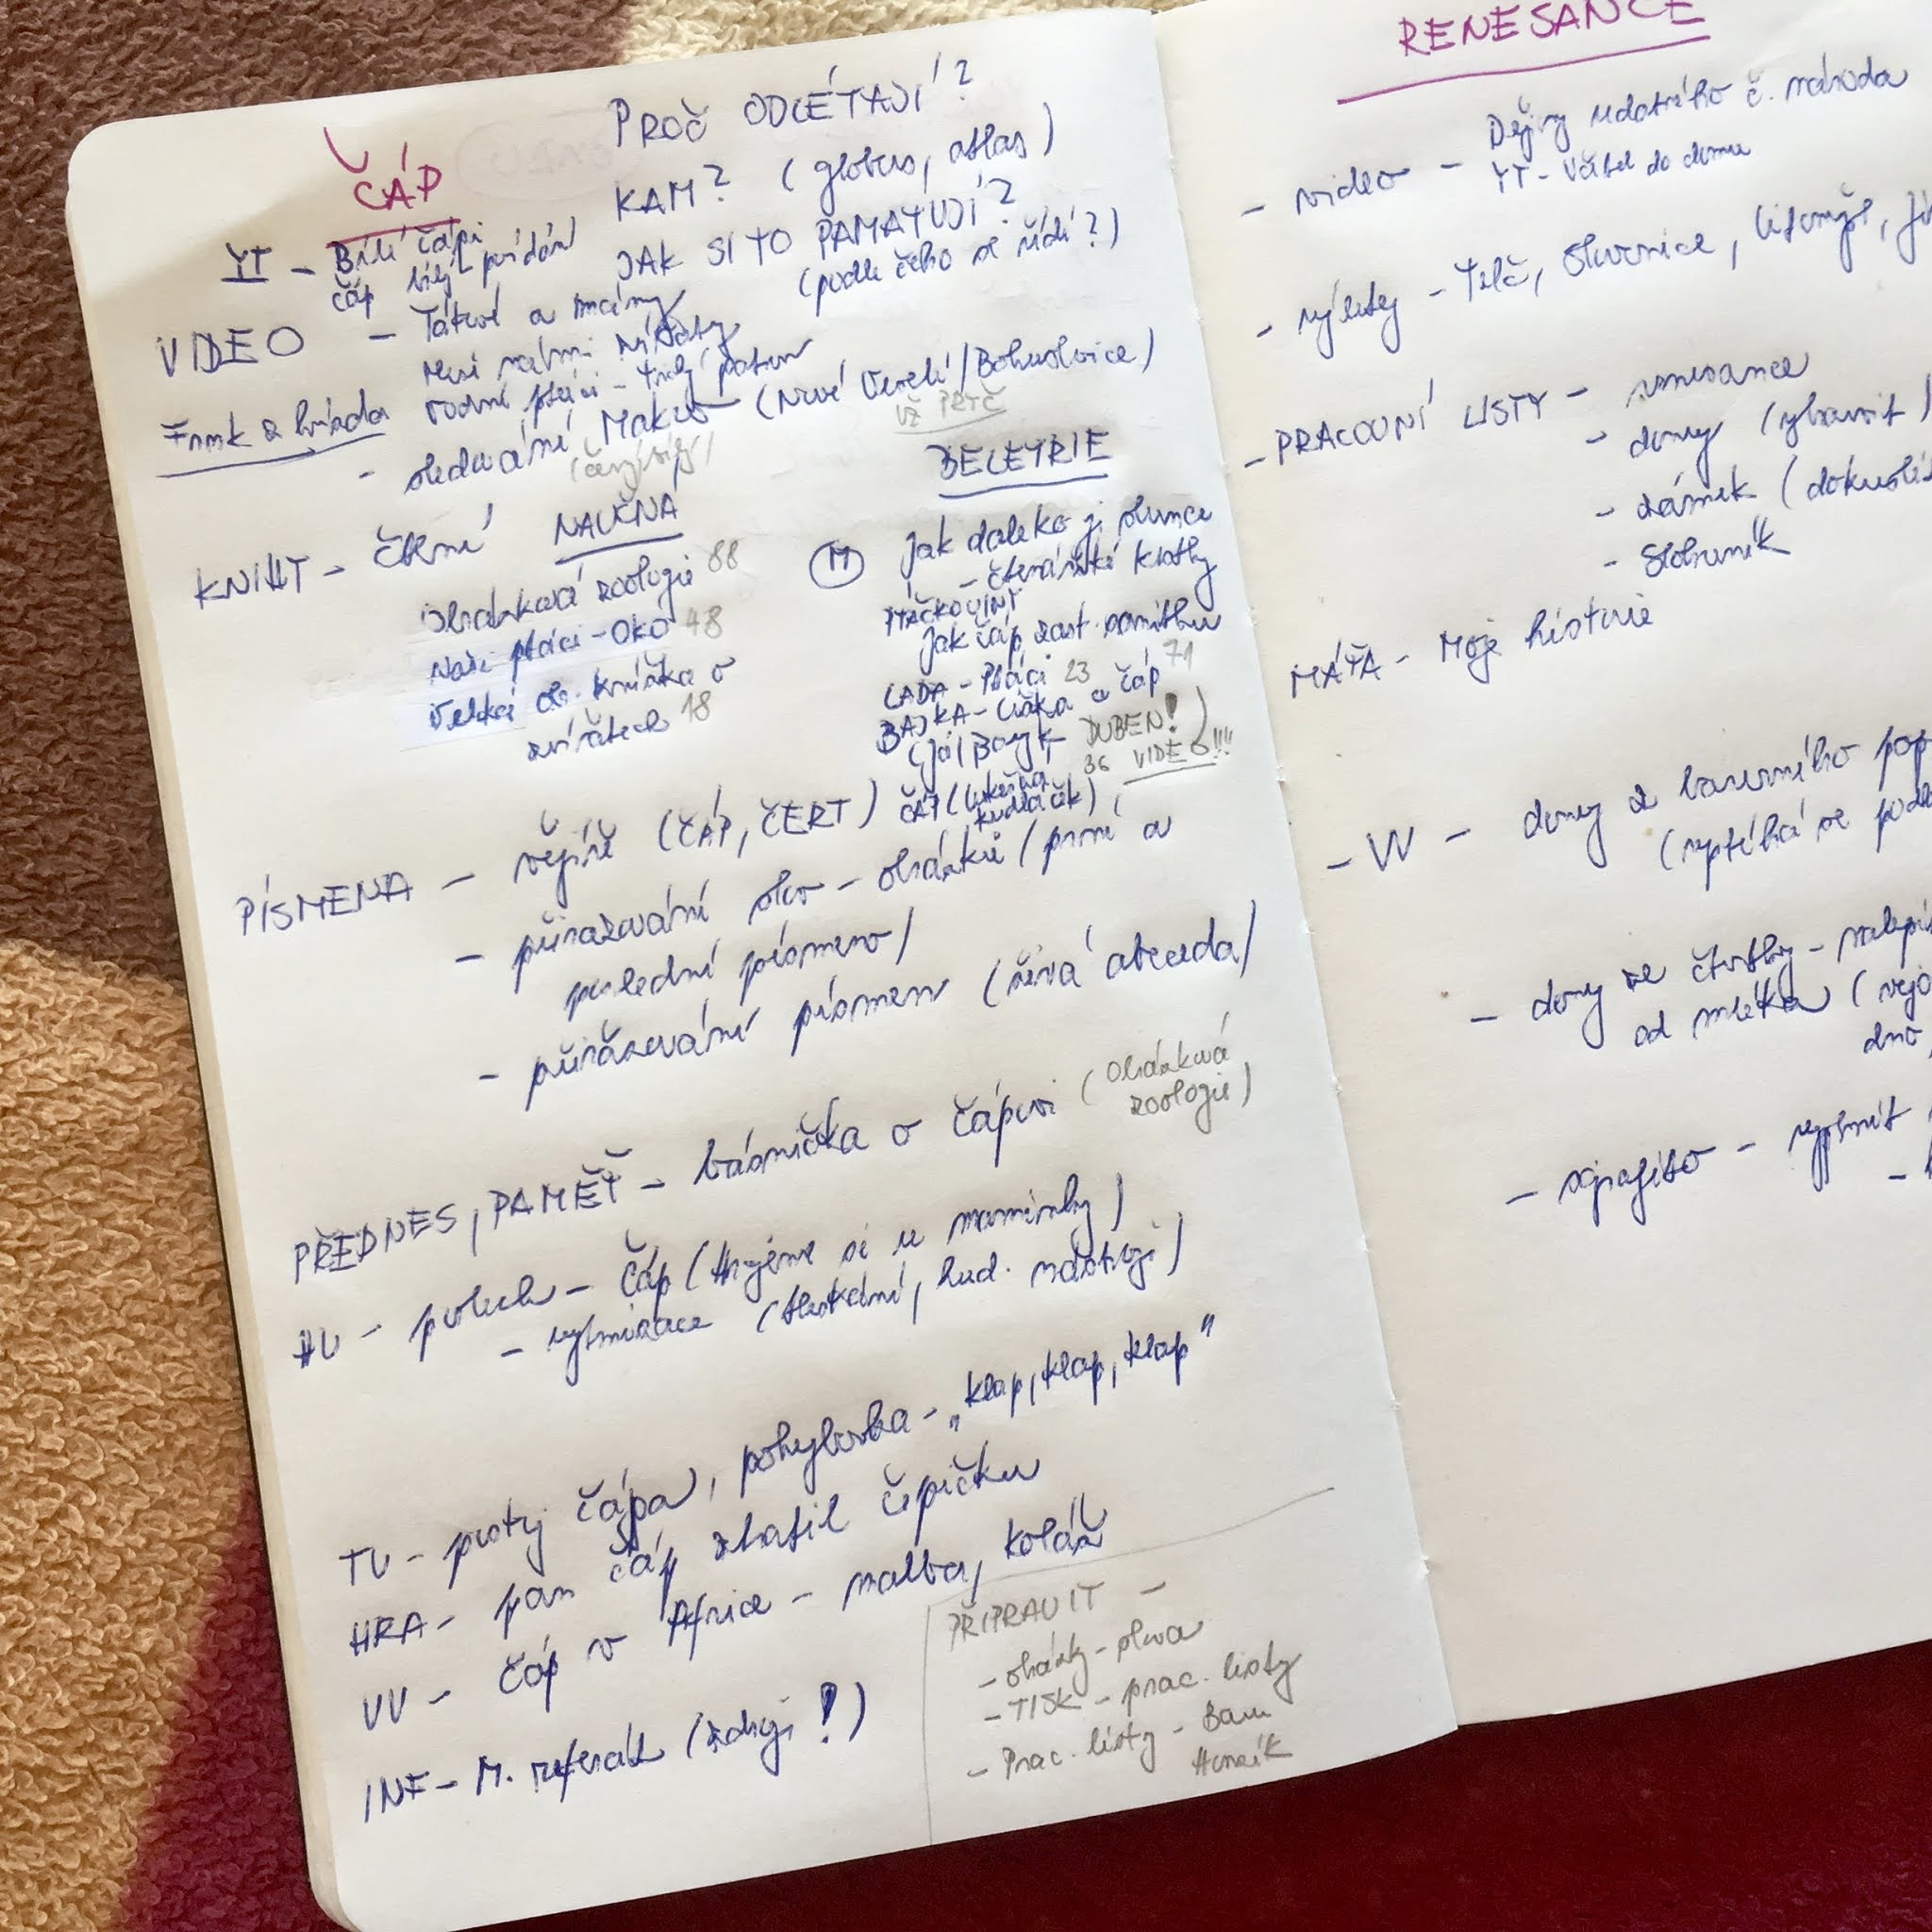 ČÁP
PROČ ODLÉTAJÍ?
KAM? (globus, atlas)
JAK SI TO PAMATUJÍ?
(podle čeho se řídí?)
YT - Bílí čápi
čáp bílý - povídání
VIDEO - Tátové a mámy
mezi námi zvířaty
vodní ptáci -
- sledování Makov (Nové Veselí/Bohuslavice)
UŽ PRYČ
(černý/bílý)
KNIHY - čtení NAUČNÁ
Obrázková zoologie 88
Naši ptáci - OKO 48
Velká obr. knížka o
zvířátech 18
BELETRIE
M Jak daleko je slunce
- čtenářské kostky
PTÁČKOVINY
Jak čáp zast. osmičku
LADA - Ptáci 23
BAJKA - Liška a čáp 71
DUBEN!
36 VIDEO!!!
ČÁP (Lukešová
Kudláček)
PÍSMENA - vějíř (ČÁP, ČERT)
- přiřazování slov - obrázků (první a
poslední písmeno)
- přiřazování písmen (živá abeceda)
PŘEDNES, PAMĚŤ - básnička o čápovi (Obrázková
zoologie)
HV - poslech - Čáp (Hrajeme si u maminky)
- rytmizace (tleskání, hud. nástroji)
TV - postoj čápa, pohybovka - „klap, klap, klap"
HRA - pan čáp ztratil čepičku
VV - čáp v Africe - malba, koláž
INF - M. referát (zdroj!)
PŘIPRAVIT -
- obrázky - slova
- TISK - prac. listy
- Prac. listy - Bam
RENESANCE
- video - Dějiny udatného č. národa
YT - Včítel do domu
- výlety - Telč, Slavonice, Litomyšl,
- PRACOVNÍ LISTY - renesance
- domy (vybarvit)
- zámek
- Slohovník
MÁŤA - Moje historie
- VV - domy z barevného
- domy ze čtvrtky -
od mléka
dno
- sgrafito -